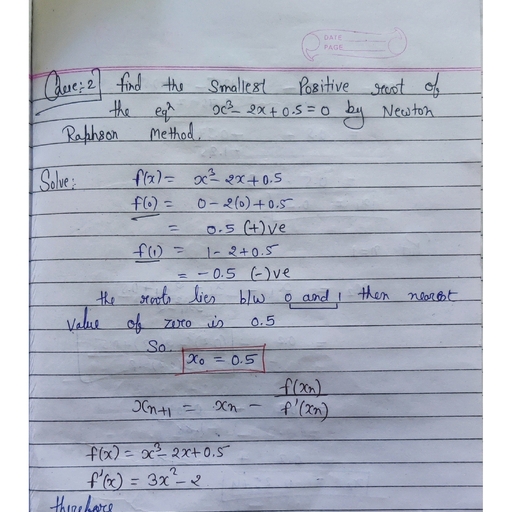 DATE
PAGE
Ques:-2 find the Smallest Positive root of
the eqⁿ x³ - 2x + 0.5 = 0 by Newton
Raphson Method.
Solve:- f(x) = x³ - 2x + 0.5
f(0) = 0 - 2(0) + 0.5
= 0.5 (+)ve
f(1) = 1 - 2 + 0.5
= -0.5 (-)ve
the roots lies b/w 0 and 1 then nearest
value of zero is 0.5
So.
x₀ = 0.5
xₙ₊₁ = xₙ - f(xₙ)/f'(xₙ)
f(x) = x³ - 2x + 0.5
f'(x) = 3x² - 2